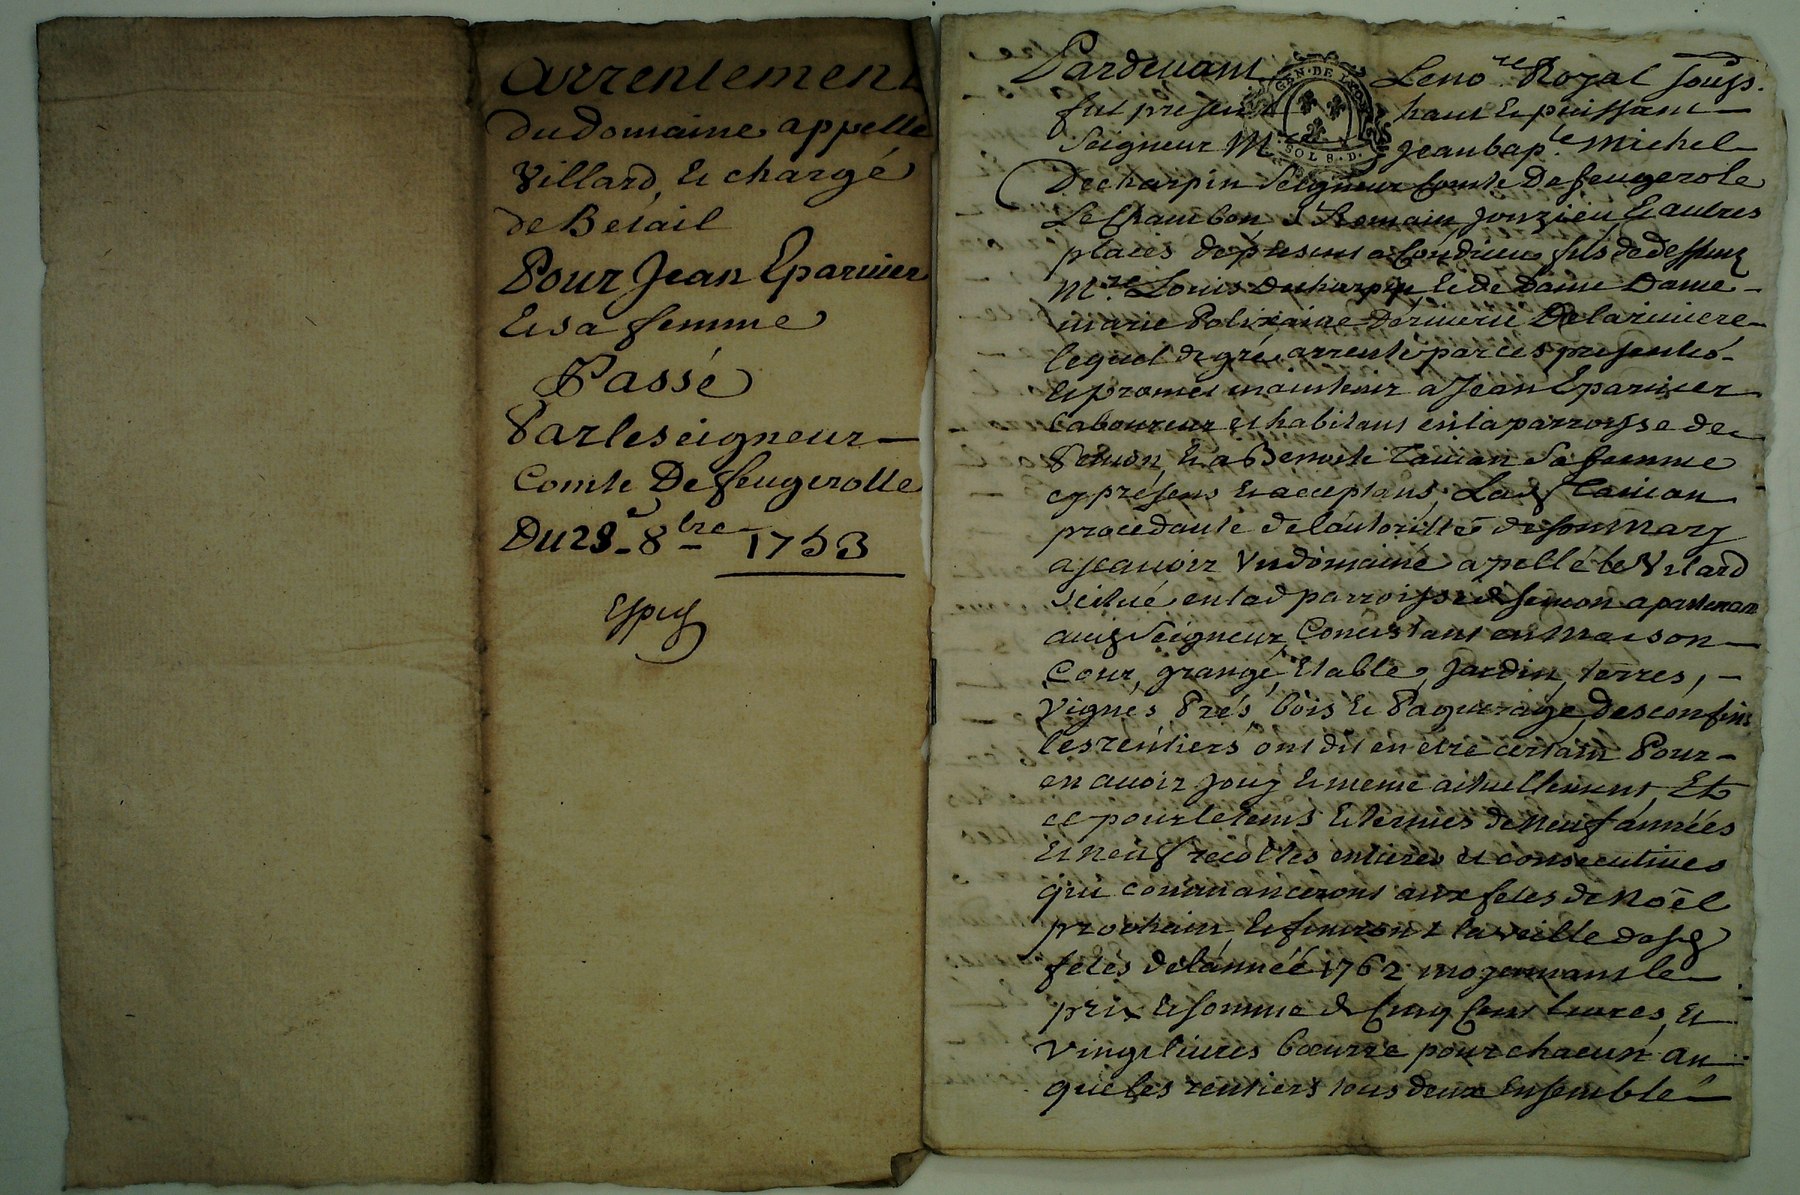 Arrentement
du domaine appellé
Villard, et chargé
de Betail
Pour Jean Eparvier
et sa femme
Passé
Par le seigneur
Comte De feugerolle
Du 28e 8bre 1753
Pardevant Le nore Royal souss.
fut present haut et puissant
Seigneur Mre Jean bapte Michel
De charpin Seigneur Comte De feugerole
Le Chambon St Romain, Jonzieu, et autres
places de present a Condrieu fils de deffunt
Mre Louis Decharpin, et de Dame Dame
marie Polixaine De la riviere
lequel de gré, arrente par ces presentes
et promet maintenir a Jean Eparvier
laboureur et habitant en la parroisse de
et a Benoite sa femme
cy présens et acceptans, Lad.
procedante de l'autoritté de son Mary
a sçavoir Un domaine apellé le Vilard
scitué en lad parroisse de apartenan
aud Seigneur, Concistant en Maison
Cour, grange, Etable, Jardin, terres,
Vignes, Prés, bois et Paquerage, des confins
les rentiers ont dit en etre certain Pour
en avoir jouy et meme actuellement, Et
ce pour le tems et termes de neuf années
et neuf recoltes entieres et consecutives
qui commanceront aux fetes de Noël
prochain et finiront la veille desd
fetes de l'année 1762 moyennant le
prix et somme de Cinq Cent livres, et
Vingt livres beurre pour chacun an
que les rentiers tous deux Ensemble
GEN. DE LYON
SOLS. D.